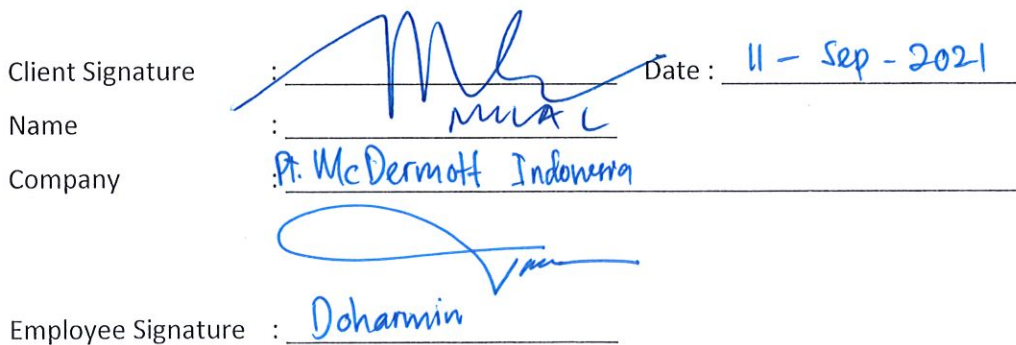 Client Signature : Date : 11 - Sep - 2021
Name :
Company : Pt. McDermott Indonesia
Employee Signature : Doharmin